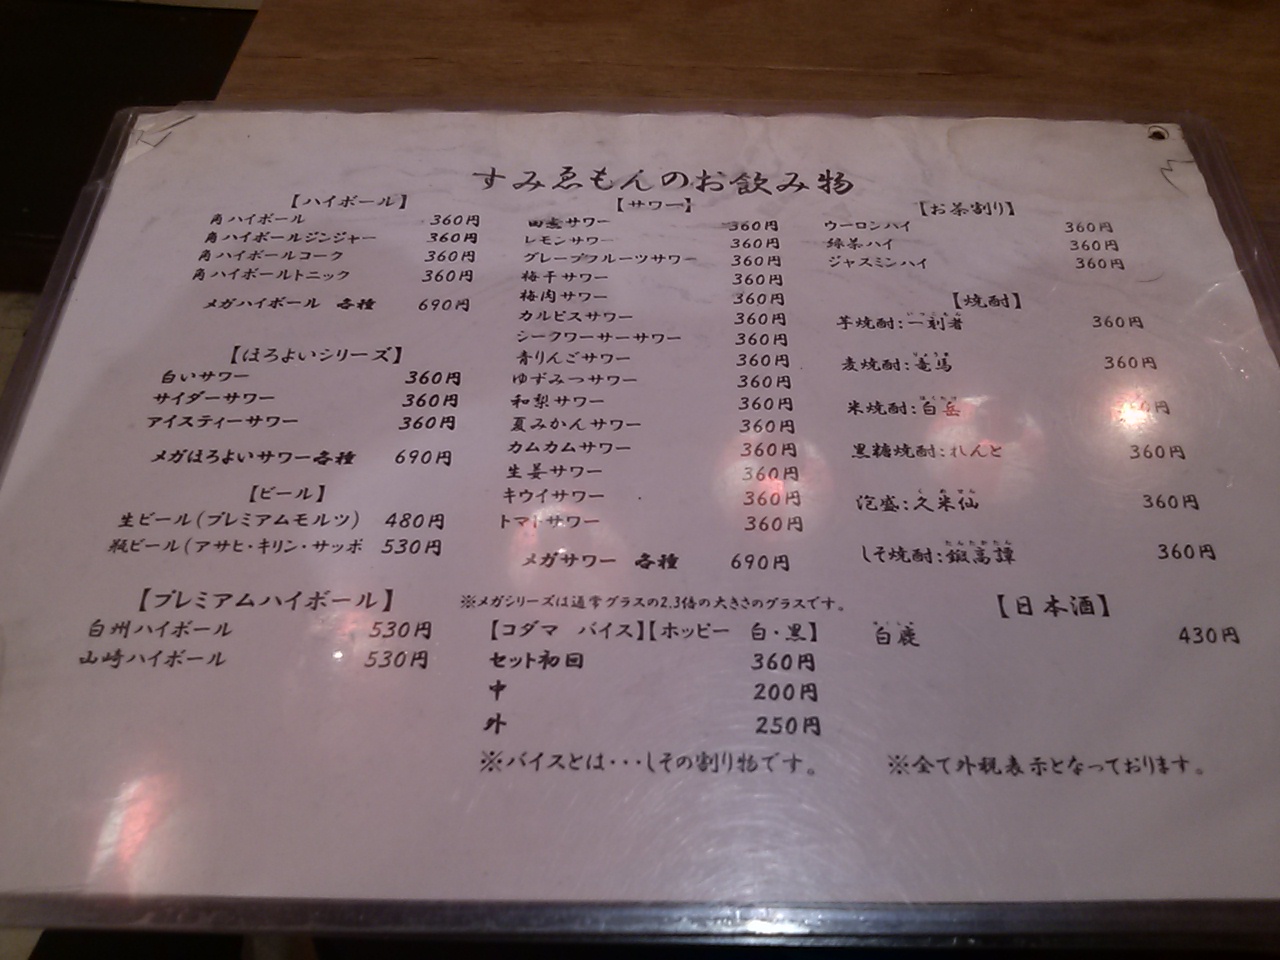 すみゑもんのお飲み物
【ハイボール】
角ハイボール 360円
角ハイボールジンジャー 360円
角ハイボールコーク 360円
角ハイボールトニック 360円
メガハイボール 各種 690円
【ほろよいシリーズ】
白いサワー 360円
サイダーサワー 360円
アイスティーサワー 360円
メガほろよいサワー各種 690円
【ビール】
生ビール(プレミアムモルツ) 480円
瓶ビール(アサヒ・キリン・サッポ 530円
【プレミアムハイボール】
白州ハイボール 530円
山崎ハイボール 530円
【サワー】
サワー 360円
レモンサワー 360円
グレープフルーツサワー 360円
梅干サワー 360円
梅肉サワー 360円
カルピスサワー 360円
シークワーサーサワー 360円
青りんごサワー 360円
ゆずみつサワー 360円
和梨サワー 360円
夏みかんサワー 360円
カムカムサワー 360円
生姜サワー 360円
キウイサワー 360円
トマトサワー 360円
メガサワー 各種 690円
※メガシリーズは通常グラスの2.3倍の大きさのグラスです。
【コダマ バイス】【ホッピー 白・黒】
セット初回 360円
中 200円
外 250円
※バイスとは・・・しその割り物です。
【お茶割り】
ウーロンハイ 360円
緑茶ハイ 360円
ジャスミンハイ 360円
【焼酎】
いっこもん
芋焼酎:一刻者 360円
りょうま
麦焼酎:竜馬 360円
はくたけ
米焼酎:白岳 360円
黒糖焼酎:れんと 360円
くめせん
泡盛:久米仙 360円
たんたかたん
しそ焼酎:鍛高譚 360円
【日本酒】
白鹿 430円
※全て外税表示となっております。